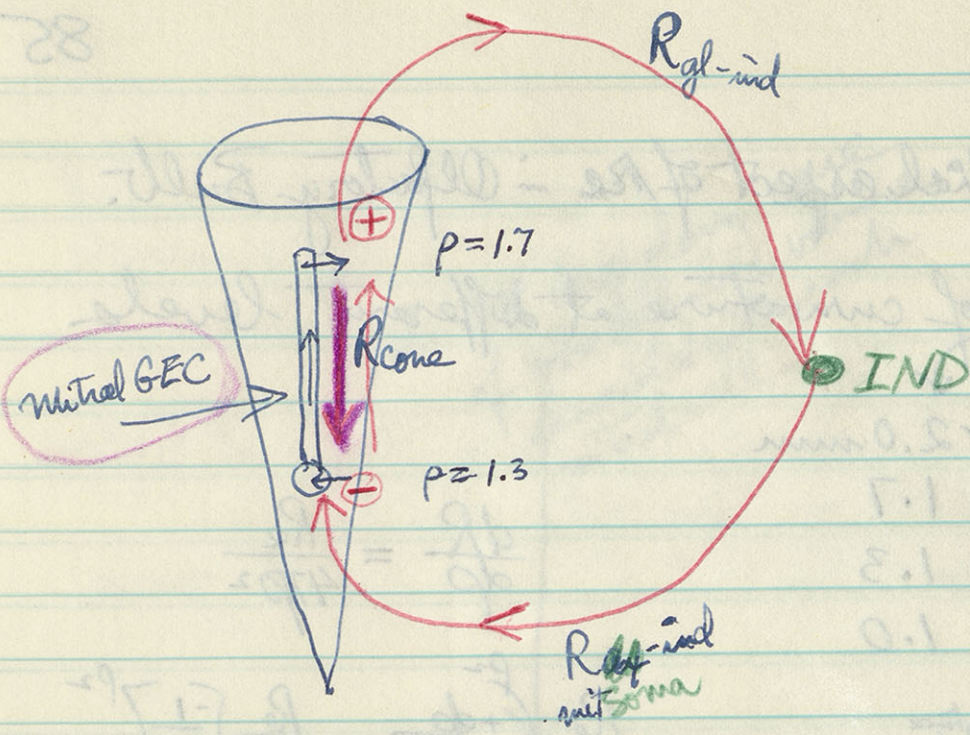 Rgl-ind
+
ρ=1.7
Rcone
mitral GEC
IND
ρ=1.3
−
R -ind
mit soma